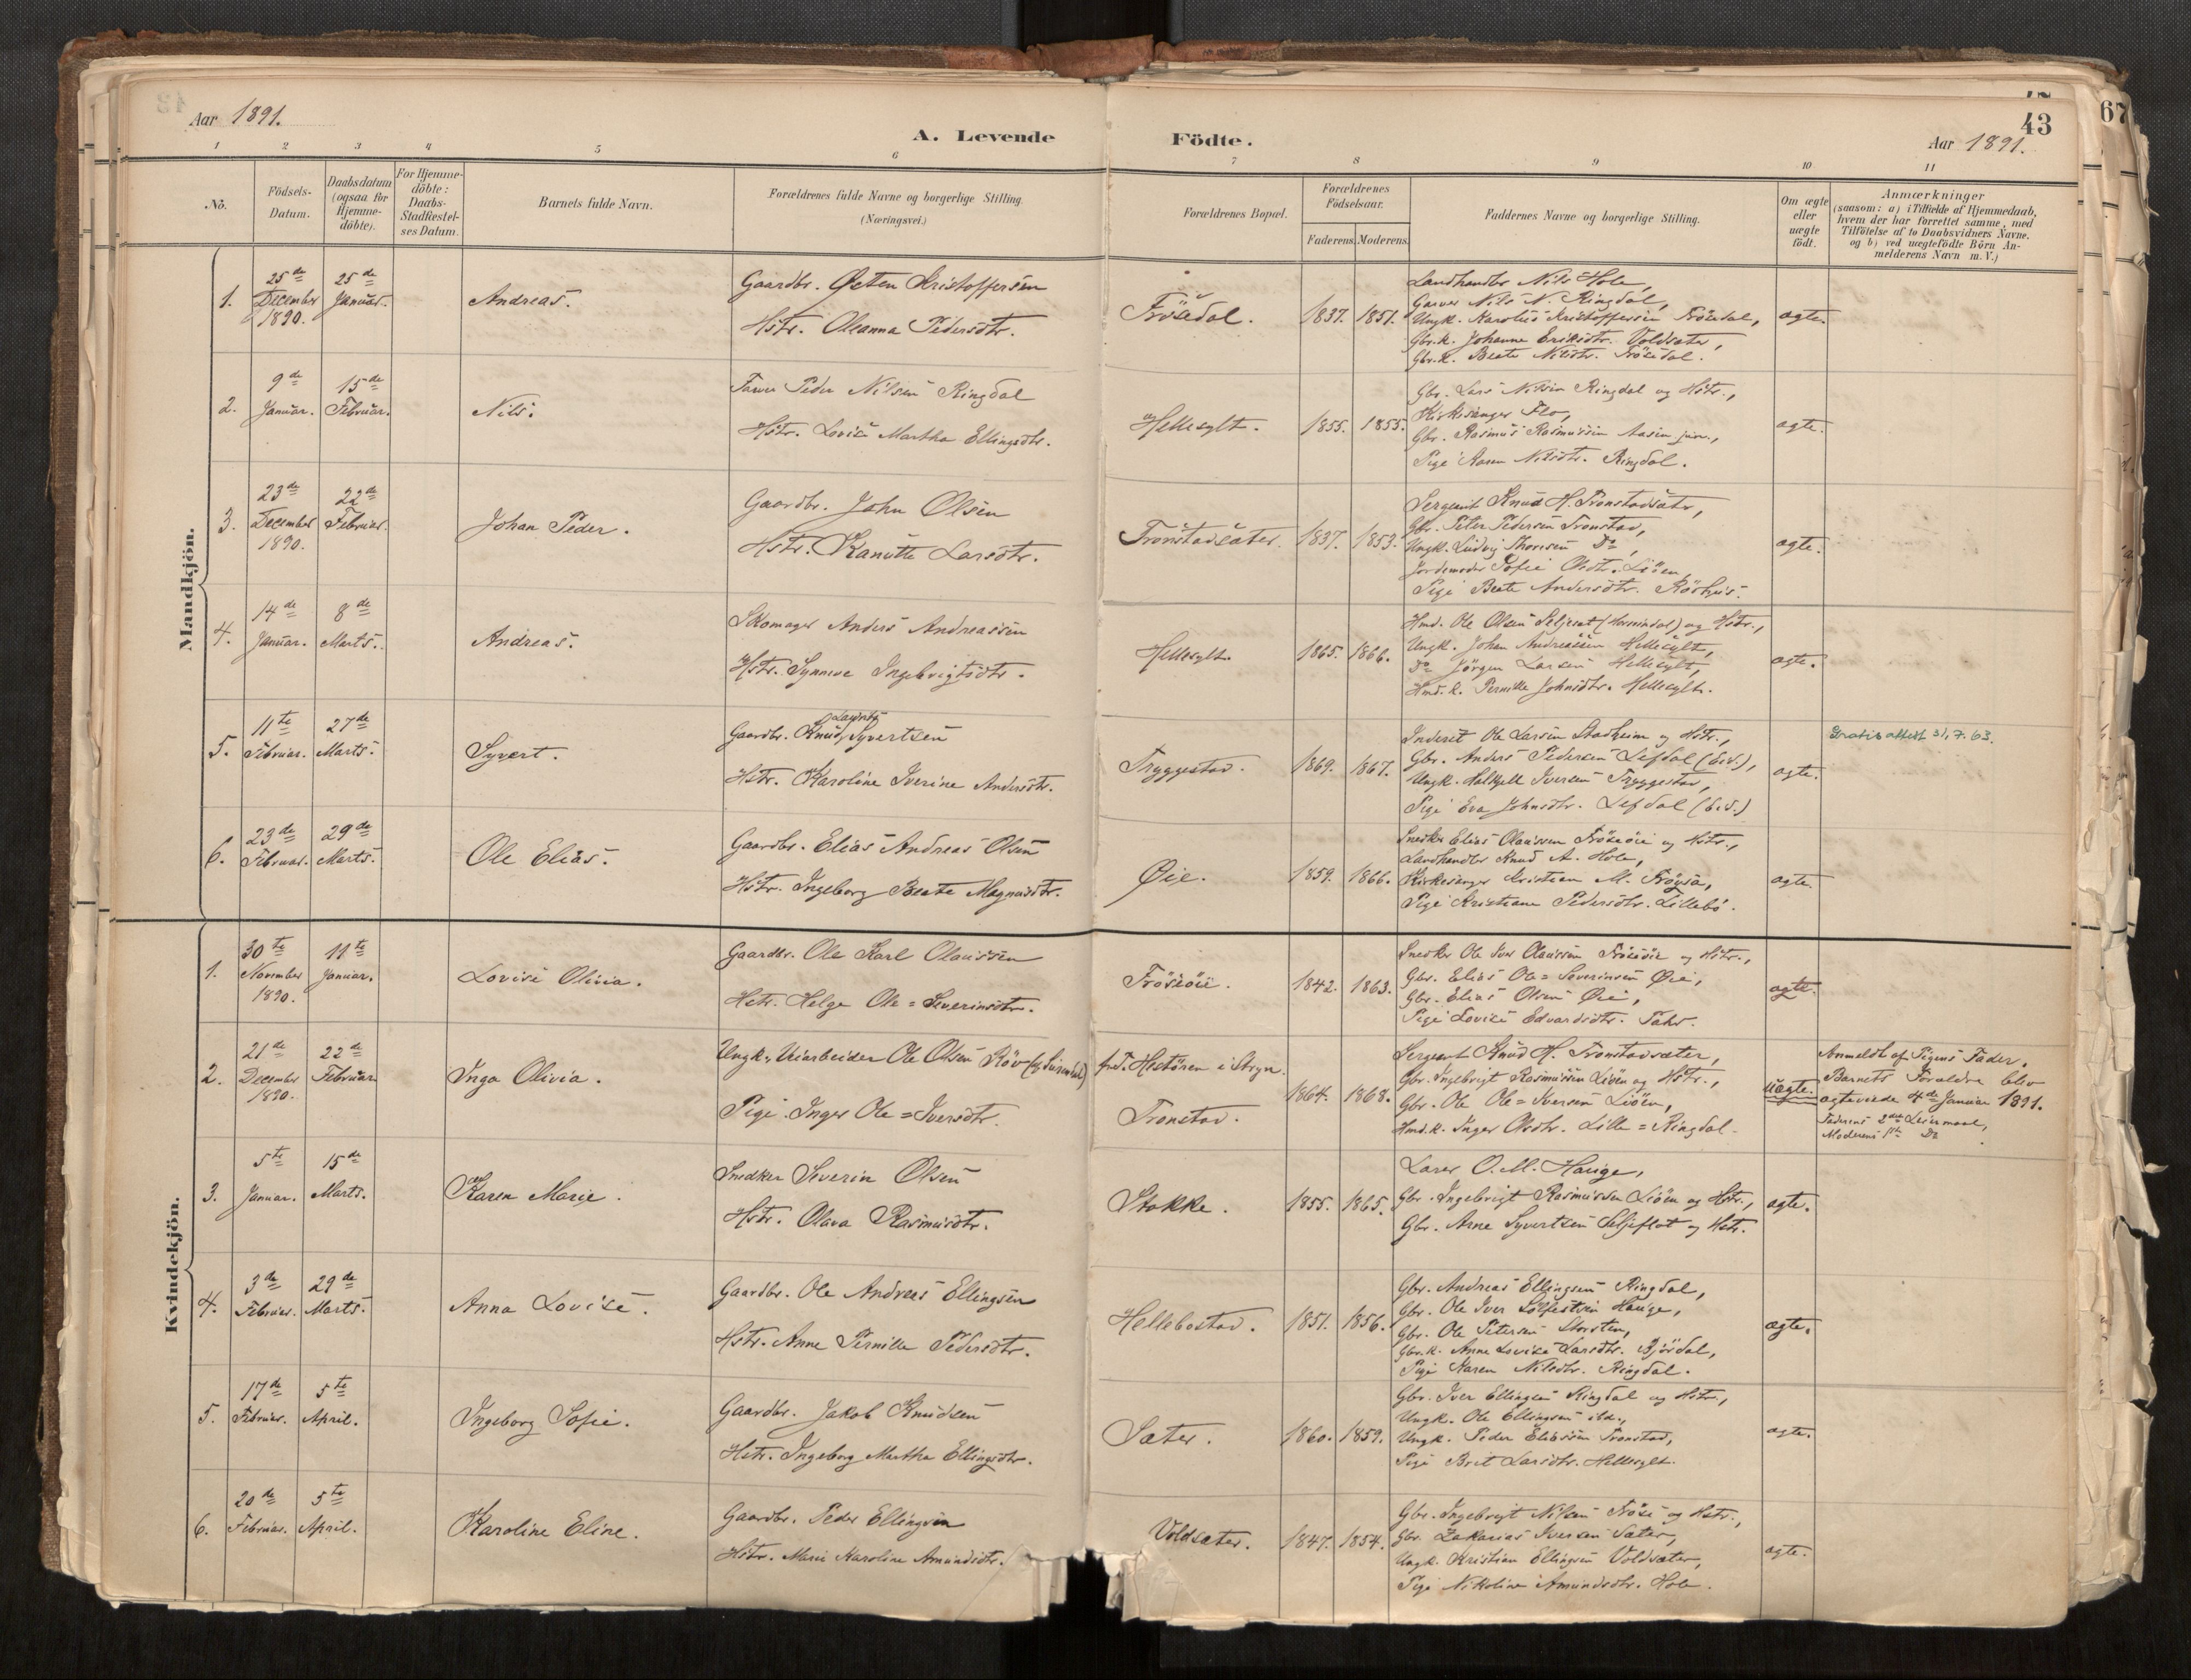 Aar 1891.
A. Levende Födte.
43
67
Aar 1891.
1 2 3 4 5 6 7 8 9 10 11
No.
Födsels-Datum.
Daabsdatum (ogsaa for Hjemme-döbte).
For Hjemme-döbte: Daabs-Stadfæstel-ses Datum.
Barnets fulde Navn.
Forældrenes fulde Navne og borgerlige Stilling.
(Næringsvei.)
Forældrenes Bopæl.
Forældrenes Födselsaar.
Faderens. Moderens.
Faddernes Navne og borgerlige Stilling.
Om ægte eller uægte födt.
Anmærkninger
(saasom: a) i Tilfælde af Hjemmedaab,
hvem der har forrettet samme, med
Tilföielse af to Daabsvidners Navne,
og b) ved uægtefödte Börn An-
melderens Navn m. V.)
Mandkjön.
1. 25de December 1890. 25de Januar. Andreas.
Gaardbr. Østen Kristoffersen
Hstr. Oleanna Pedersdtr.
Frøsedal. 1837. 1851.
Landhandler Nils Hole,
Garver Nils N. Ringdal,
Ungk. Karolus Kristoffersen Frøsdal,
Gbr.k. Johanne Eriksdtr. Voldsæter,
Gbr.k. Beate Nilsdtr. Frøsedal.
ægte.
2. 9de Januar. 15de Februar. Nils.
Peder Nilsen Ringdal
Hstr. Lovise Martha Ellingsdtr.
Hellesylt. 1855. 1855.
Gbr. Lars Nilsen Ringdal og Hstr.,
Kirkesanger Flo,
Gbr. Rasmus Rasmussen Aasen jun.,
Pige Karen Nilsdtr. Ringdal.
ægte.
3. 23de December 1890. 22de Februar. Johan Peder.
Gaardbr. John Olsen
Hstr. Kanutte Larsdtr.
Tronstadsæter. 1837. 1853.
Sergeant Knud H. Tronstadsætr,
Gbr. Peter Pedersen Tronstad,
Ungk. Ludvig Thorsen Do,
Jordemoder Sofie Olsdt. Liöen,
Pige Beate Andersdtr. Röshus.
ægte.
4. 14de Januar. 8de Marts. Andreas.
Skomager Anders Andreassen
Hstr. Synneve Ingebrigtsdtr.
Hellesylt. 1865. 1866.
Hmd. Ole Olsen Seljeset (Hornindal) og Hstr.,
Ungk. Johan Andreassen Hellesylt,
Do Jørgen Larsen Hellesylt,
Hmd.k. Pernille Johnsdtr. Hellesylt.
ægte.
5. 11te Februar. 27de Marts. Syvert.
Gaardbr. Knud Laurits Syvertsen
Hstr. Karoline Iverine Andersdtr.
Tryggestad. 1869. 1867.
Inderst Ole Larsen Stadheim og Hstr.,
Gbr. Anders Pedersen Lefdal (Eid.),
Ungk. Halkjell Iversen Tryggestad,
Pige Eva Johnsdtr. Lefdal (Eid.)
ægte.
Gratis attest 31.7.63.
6. 23de Februar. 29de Marts. Ole Elias.
Gaardbr. Elias Andreas Olsen
Hstr. Ingeborg Beate Magnusdtr.
Øie. 1859. 1866.
Snedker Elias Olaussen Frøsøie og Hstr.,
Landhandler Knud A. Hole,
Kirkesanger Kristian M. Frøysa,
Pige Kristiane Pedersdtr. Lillebö.
ægte.
Kvindekjön.
1. 30te November 1890. 11te Januar. Lovise Olivia.
Gaardbr. Ole Karl Olaussen
Hstr. Helge Ole=Severinsdtr.
Frøsøie. 1842. 1863.
Snedker Ole Iver Olaussen Frøsøie og Hstr.,
Gbr. Elias Ole=Severinsen Øie,
Gbr. Elias Olsen Øie,
Pige Lovise Edvardsdtr.
ægte.
2. 21de December 1890. 22de Februar Inga Olivia.
Ungk., Veiarbeider Ole Olsen Röv
Pige Inger Ole=Iversdtr.
fød. i Stryn.
Tronstad. 1864. 1868.
Sergeant Knud H. Tronstadsæter,
Gbr. Ingebrigt Rasmussen Liöen og Hstr.,
Gbr. Ole Ole=Iversen Liöen,
Hmd.k. Inger Olsdtr. Lille=Ringdal.
uægte.
Anmeldt af Pigens Fader.
Barnets Forældre blev
ægteviede 4de Januar 1891.
Faderens 2det Leiermaal,
Moderens 1ste Do
3. 5te Januar. 15de Marts. Karen Marie.
Snedker Severin Olsen
Hstr. Olava Rasmusdtr.
Stokke. 1855. 1865.
Lærer O. M. Hauge,
Gbr. Ingebrigt Rasmussen Liöen og Hstr.,
Gbr. Arne Syvertsen Seljeflot og Hstr.
ægte.
4. 3de Februar. 29de Marts. Anna Lovise.
Gaardbr. Ole Andreas Ellingsen
Hstr. Anne Pernille Pedersdtr.
Hellebostad. 1851. 1856.
Gbr. Andreas Ellingsen Ringdal,
Gbr. Ole Iver Sølfestsen Hauge,
Gbr. Ole Petersen Storsten,
Gbr.k. Anne Lovise Larsdtr. Bjørdal,
Pige Karen Nilsdtr. Ringdal.
ægte.
5. 17de Februar. 5te April. Ingeborg Sofie.
Gaardbr. Jakob Knudsen
Hstr. Ingeborg Martha Ellingsdtr.
Sæter. 1860. 1859.
Gbr. Iver Ellingsen Ringdal og Hstr.,
Ungk. Ole Ellingsen ibd.,
Ungk. Peder Eliassen Tronstad,
Pige Brit Larsdtr. Hellesylt.
ægte.
6. 20de Februar. 5te April. Karoline Eline.
Gaardbr. Peder Ellingsen
Hstr. Marie Karoline Amundsdtr.
Voldsæter. 1847. 1854.
Gbr. Ingebrigt Nilsen Frøse og Hstr.,
Gbr. Zakarias Iversen Sæter,
Ungk. Kristian Ellingsen Voldsæter,
Pige Nikoline Amundsdtr. Hole.
ægte.